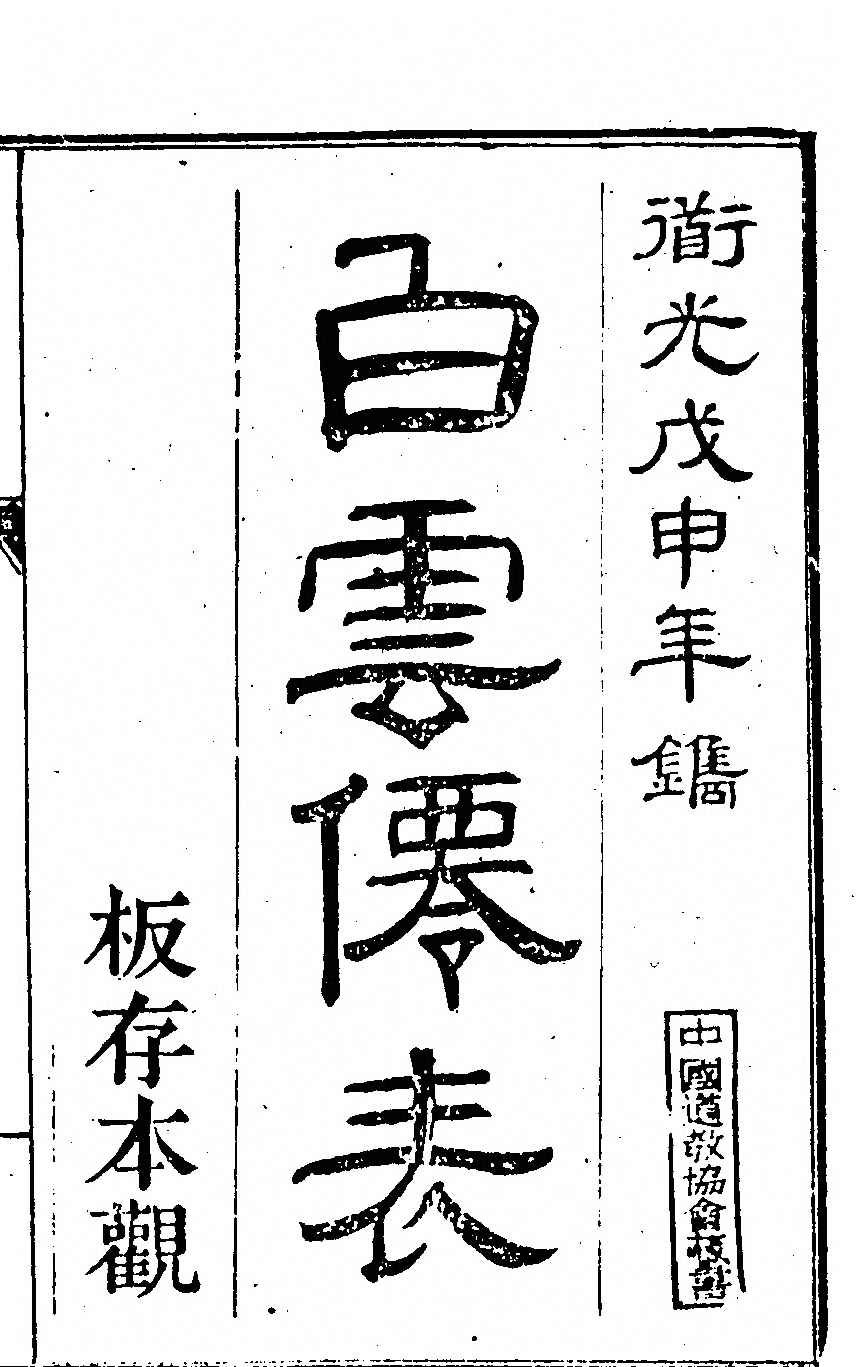 衜光戊申年鐫
中國道教協會
白雲僊表
板存本觀